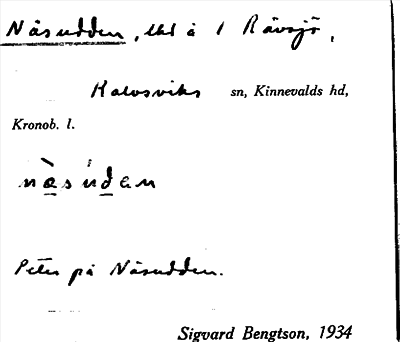 Näsudden, lht å 1 Rävsjö,
Kalvsviks sn, Kinnevalds hd,
Kronob. l.
næsudan
Peter på Näsudden.
Sigvard Bengtson, 1934